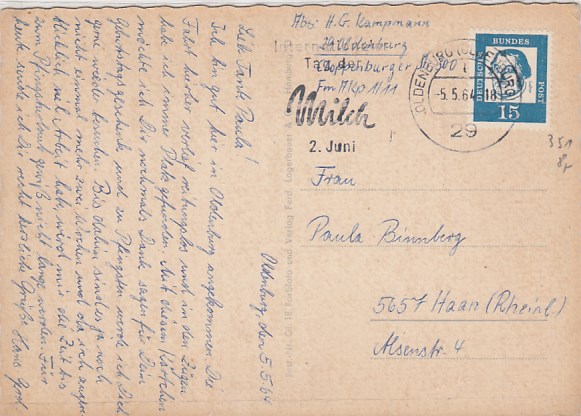 Oldenburg den 5.5.64
Liebe Tante Paula!
Ich bin gut hier in Oldenburg angekommen. Die
Fahrt hierher verlief reibungslos und in den Zügen
habe ich immer Platz gefunden. Mit diesem Kärtchen
möchte ich Dir nochmals Dank sagen für Dein
Geburtstagsgeschenk und zu Pfingsten werde ich Dich
gerne wieder besuchen. Bis dahin sind es ja noch
nicht einmal mehr zwei Wochen und da ich augen-
blicklich viel Arbeit hab, wird mir die Zeit bis
zum Pfingsturlaub gewiß nicht lange werden. Für
heute sende ich Dir recht herzliche Grüße Hans Gerd.
Abs: H.G. Kampmann
29 Oldenburg
Cloppenburger Str. 300
Fm AKp 11/11
Internationaler
Tag der
Milch
2. Juni
OLDENBURG (OLDB)
-5.5.64-18
29
DEUTSCHE
BUNDES
POST
15
351
Frau
Paula Binnberg
5657 Haan (Rheinl.)
Alsenstr. 4